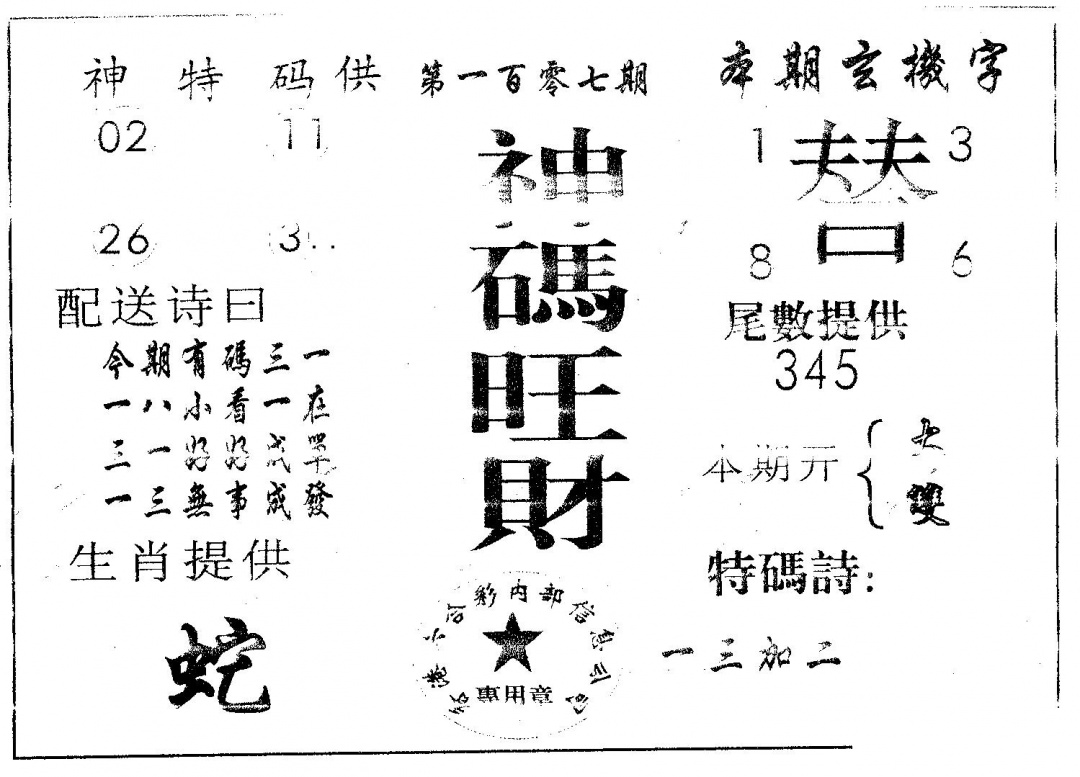 神特码供
02 11
26 3
配送诗曰
今期有碼三一
一八小看一在
三一好好成單
一三無事成發
生肖提供
蛇
第一百零七期
神碼旺財
彩内部信息
專用章
本期玄機字
1 替 3
8 6
尾數提供
345
本期开 { 大 雙
特碼詩:
一三加二